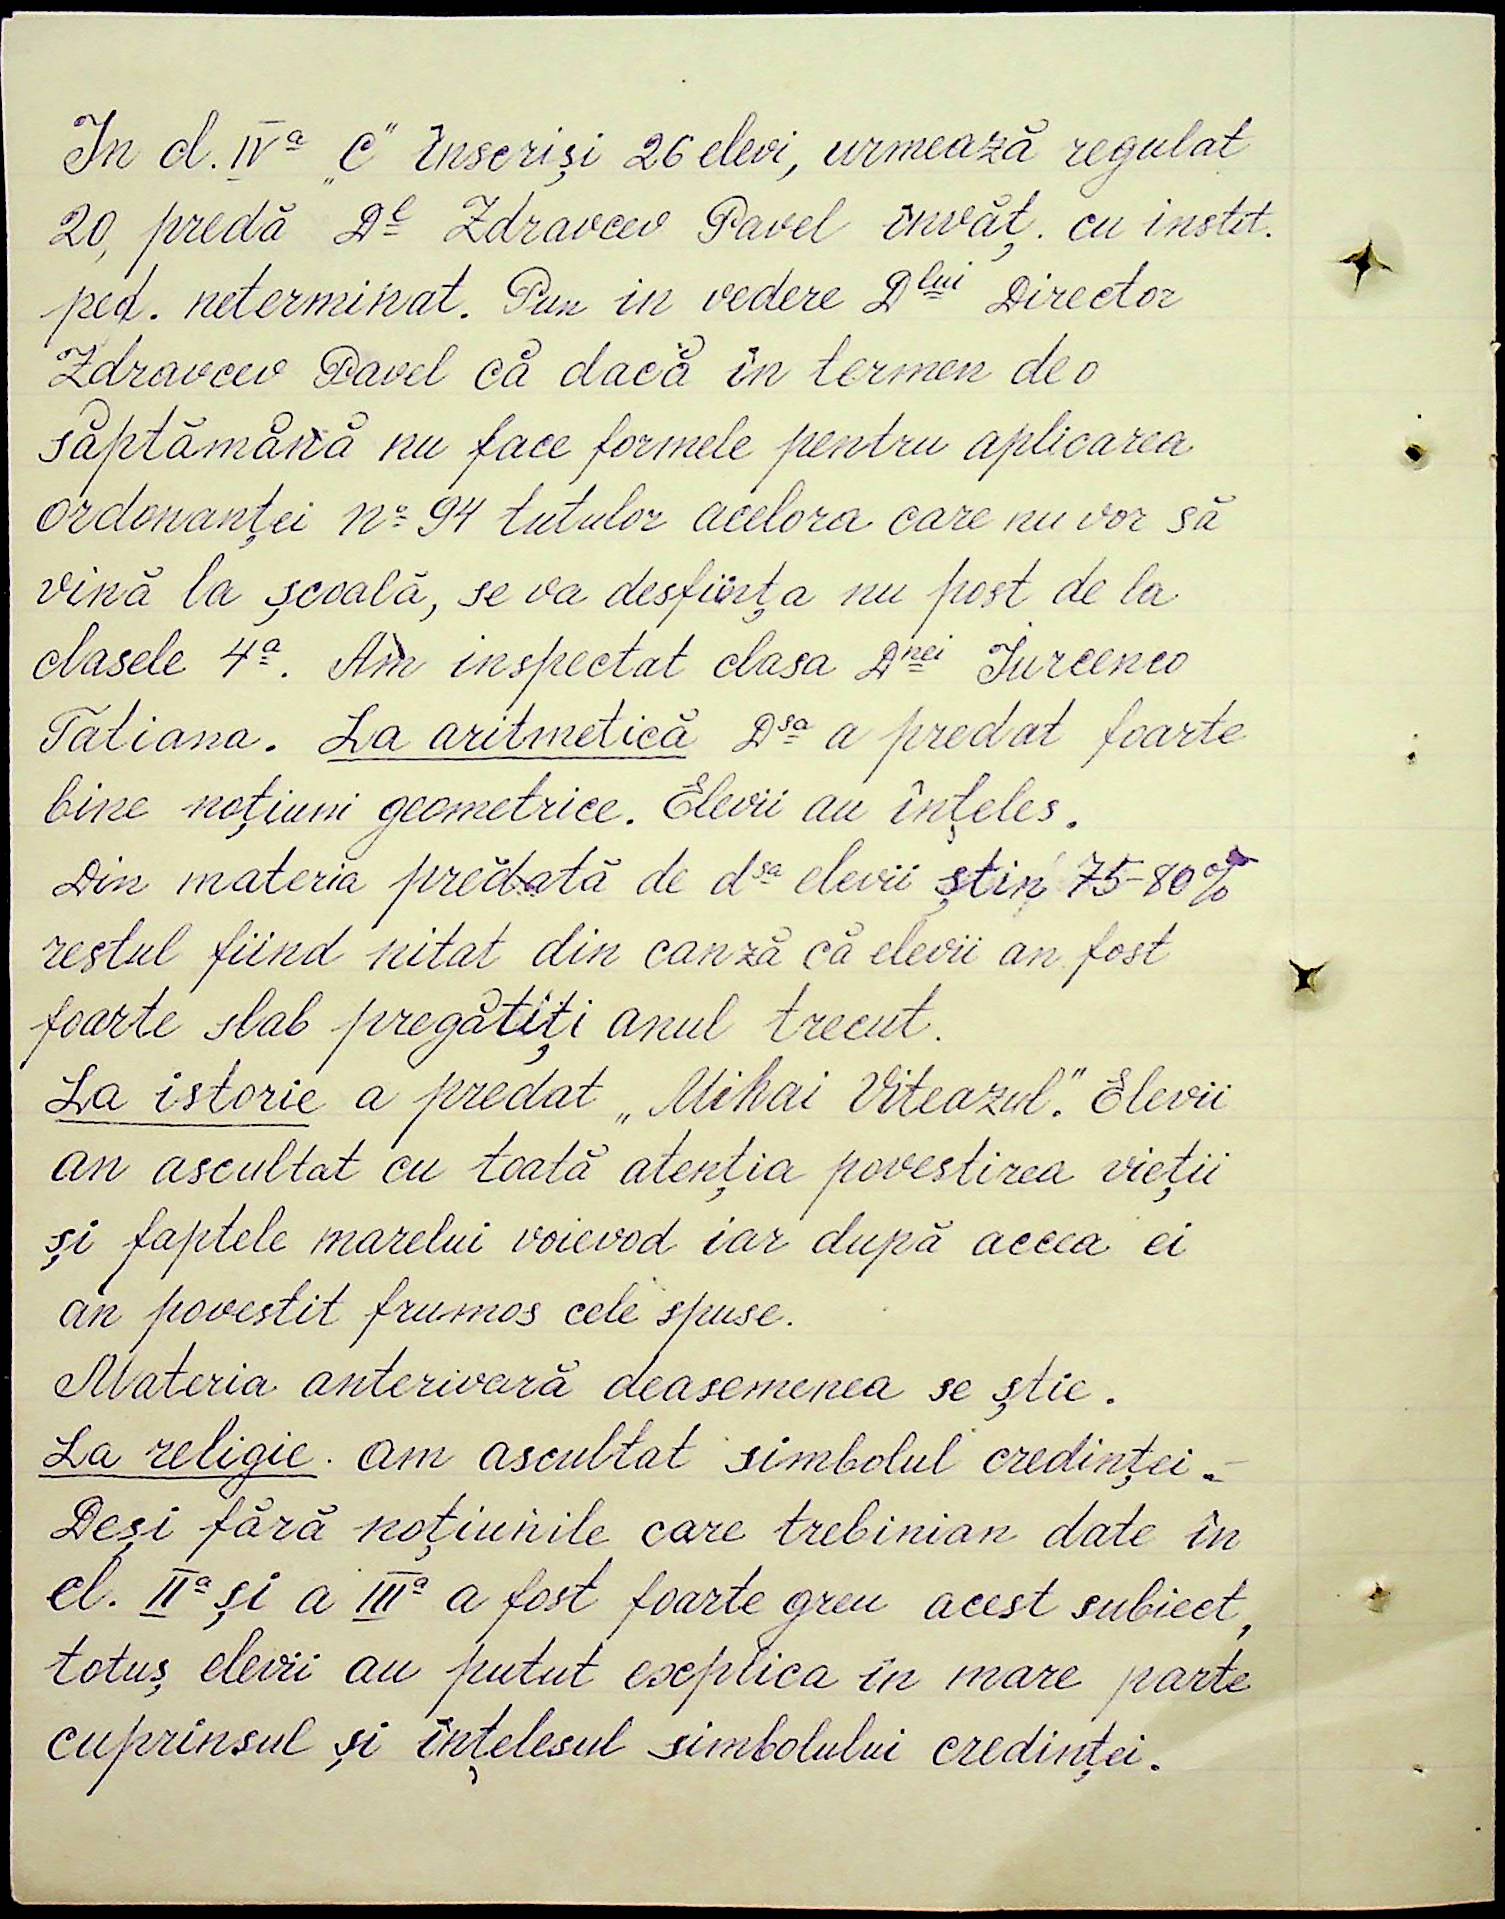 In cl. IVª „C" înscriși 26 elevi, urmează regulat
20, predă Dl Zdravcev Pavel învăț. cu instit.
ped. neterminat. Pun in vedere Dlui Director
Zdravcev Pavel că dacă în termen de o
săptămână nu face formele pentru aplicarea
ordonanței Nº 94 tutulor acelora care nu vor să
vină la școală, se va desființa nu post de la
clasele 4ª. Am inspectat clasa Dnei Iurcenco
Tatiana. La aritmetică Dsa a predat foarte
bine noțiuni geometrice. Elevii au înțeles.
Din materia predată de dsa elevii știu 75-80%
restul fiind uitat din cauză că elevii au fost
foarte slab pregătiți anul trecut.
La istorie a predat „Mihai Viteazul". Elevii
au ascultat cu toată atenția povestirea vieții
și faptele marelui voievod iar după aceea ei
au povestit frumos cele spuse.
Materia anterioară deasemenea se știe.
La religie. am ascultat simbolul credinței.-
Deși fără noțiunile care trebiniau date în
cl. IIª și a IIIª a fost foarte greu acest subiect,
totuș elevii au putut explica în mare parte
cuprinsul și înțelesul simbolului credinței.